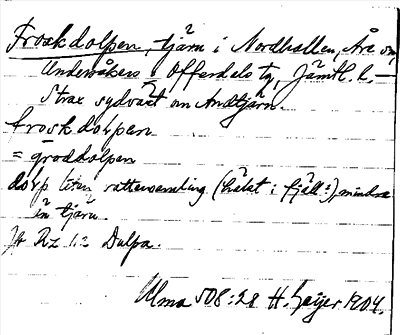 Froskdolpen, tjärn i Nordhallen, Åre sn,
Undersåkers o Offerdals tg, Jämtl. l. —
Strax sydväst om Andtjärn.
froskdolpen
= groddolpen
dolp liten vattensamling (helst i fjäll:), mindre
än tjärn.
Jfr Rz 1:2 Dalpa.
Ulma 508:28 H. Geijer 1904.